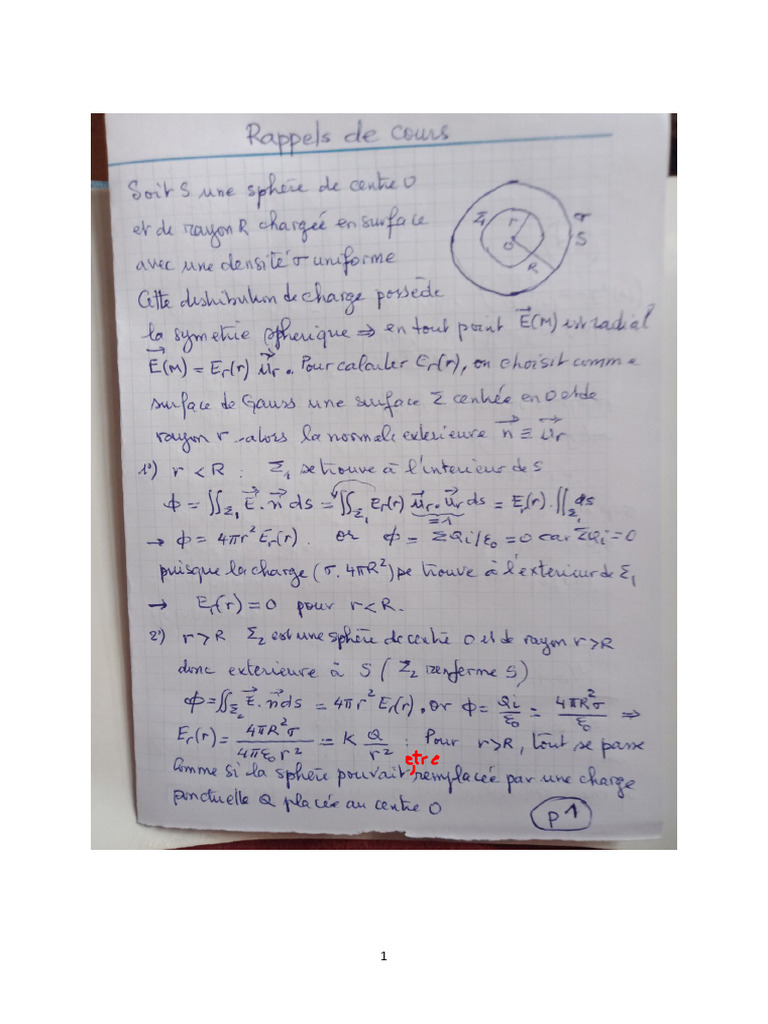 Rappels de cours
Soit S une sphère de centre O
et de rayon R chargée en surface
avec une densité σ uniforme
Σ1 r O R σ S
Cette distribution de charge possède
la symetrie spherique ⇒ en tout point E⃗(M) est radial
E⃗(M) = Er(r) u⃗r. Pour calculer Er(r), on choisit comme
surface de Gauss une surface Σ centrée en O et de
rayon r alors la normale exterieure n⃗ ≡ u⃗r
1°) r < R : Σ1 se trouve à l'interieur de S
ϕ = ∬Σ1 E⃗. n⃗ ds = ∬Σ1 Er(r) u⃗r. u⃗r ds = Er(r). ∬Σ1 ds
=1
→ ϕ = 4πr² Er(r). or ϕ = ΣQi/ε0 = 0 car ΣQi = 0
puisque la charge (σ. 4πR²) se trouve à l'exterieur de Σ1
→ Er(r) = 0 pour r < R.
2°) r > R Σ2 est une sphère de centre O et de rayon r > R
donc exterieure à S ( Σ2 renferme S)
ϕ = ∬Σ2 E⃗. n⃗ ds = 4πr² Er(r), or ϕ = Qi/ε0 = 4πR²σ/ε0 ⇒
Er(r) = 4πR²σ/4πε0 r² = K Q/r² : Pour r > R, tout se passe
comme si la sphère pouvait etre remplacée par une charge
ponctuelle Q placée au centre O
p1
1